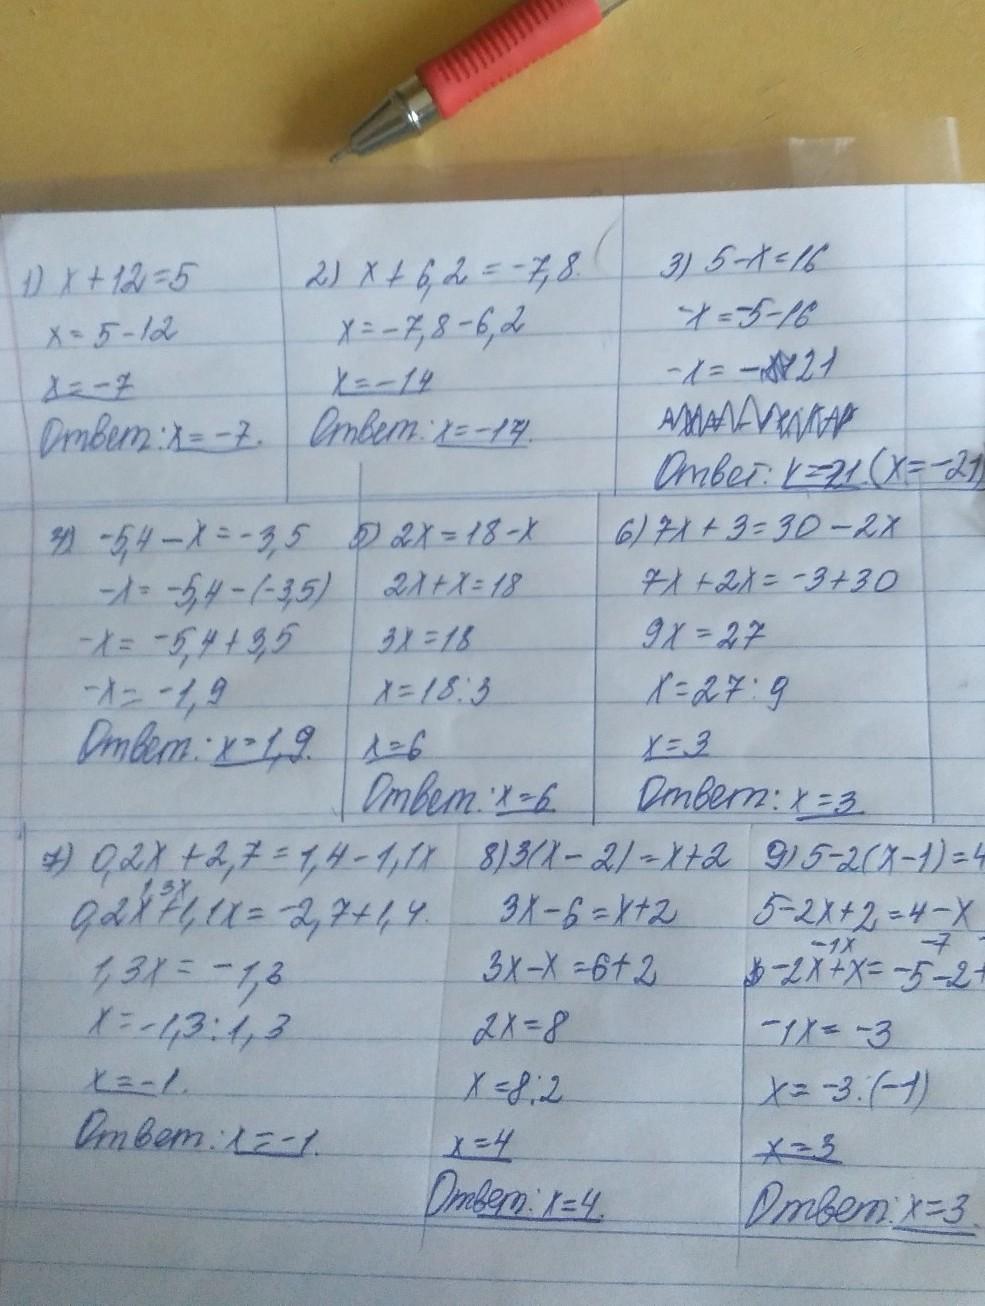 1) x+12=5
x=5-12
x=-7
Ответ: x=-7.
2) x+6,2=-7,8.
x=-7,8-6,2
x=-14
Ответ: x=-14.
3) 5-x=16
-x=-5-16
-x=-21
Ответ: x=-21 (x=-21)
4) -5,4-x=-3,5
-x=-5,4-(-3,5)
-x=-5,4+3,5
-x=-1,9
Ответ: x=1,9.
5) 2x=18-x
2x+x=18
3x=18
x=18:3
x=6
Ответ: x=6
6) 7x+3=30-2x
7x+2x=-3+30
9x=27
x=27:9
x=3
Ответ: x=3
7) 0,2x+2,7=1,4-1,1x
1,3x
0,2x+1,1x=-2,7+1,4.
1,3x=-1,3
x=-1,3:1,3
x=-1.
Ответ: x=-1.
8) 3(x-2)=x+2
3x-6=x+2
3x-x=6+2
2x=8
x=8:2
x=4
Ответ: x=4.
9) 5-2(x-1)=4
5-2x+2=4-x
-1x -7
-2x+x=-5-2+
-1x=-3
x=-3:(-1)
x=3
Ответ: x=3.